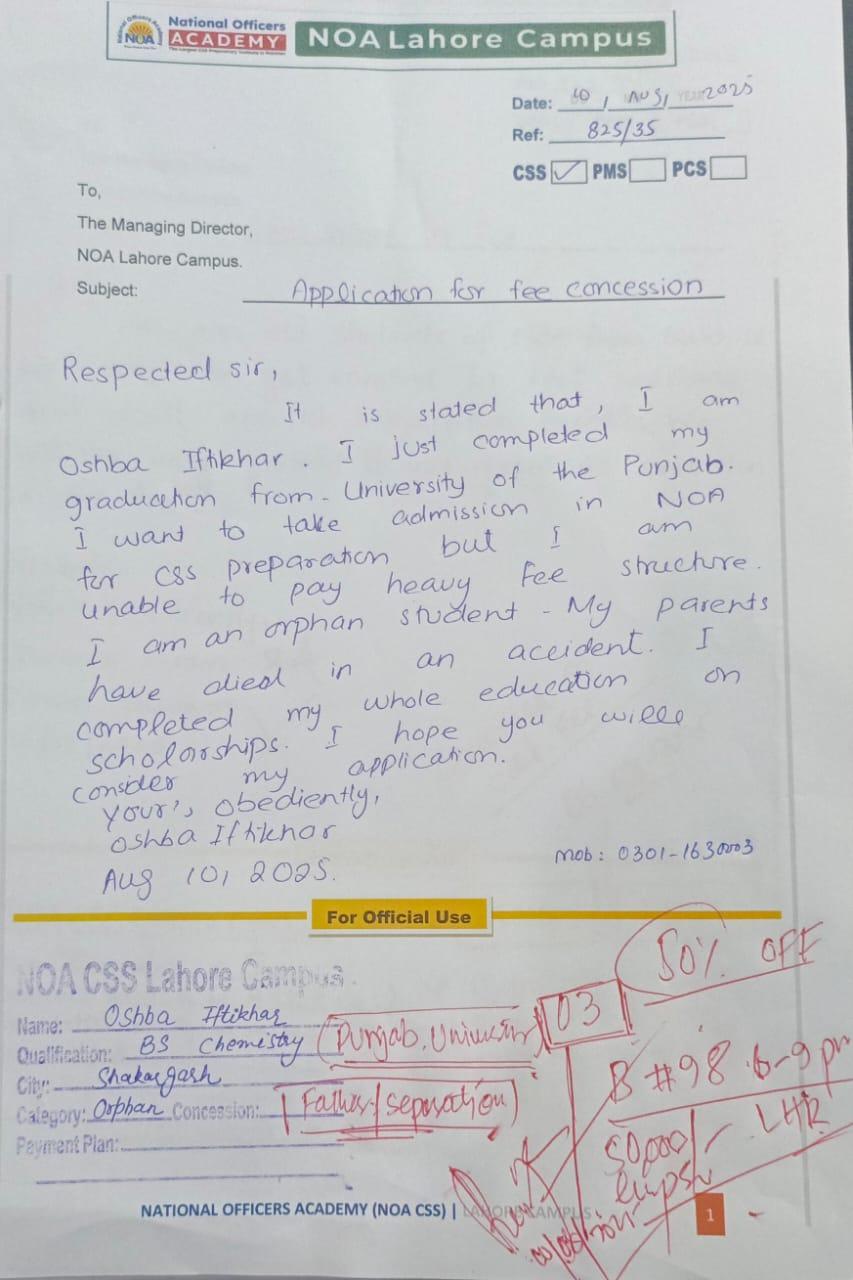 National Officers
NOA ACADEMY
NOA Lahore Campus
Date: 10, AUG, YEAR 2025
Ref: 825/35
CSS ✓ PMS PCS
To,
The Managing Director,
NOA Lahore Campus.
Subject: Application for fee concession
Respected sir,
It is stated that, I am
Oshba Iftikhar. I just completed my
graduation from University of the Punjab.
I want to take admission in NOA
for CSS preparation but I am
unable to pay heavy fee structure.
I am an orphan student - My parents
have died in an accident. I
completed my whole education on
scholarships. I hope you wille
consider my application.
Your's obediently,
Oshba Iftikhar
Aug 10, 2025.
Mob: 0301-1630003
For Official Use
50% OFF
NOA CSS Lahore Campus
Name: Oshba Iftikhar
Qualification: BS Chemistry (Punjab. University) 03
City: Shakargarh
B #98 6-9 pm
Category: Orphan Concession: Father/Separation
50,000/- LHR
Payment Plan:
NATIONAL OFFICERS ACADEMY (NOA CSS) | LAHORE CAMPUS
1